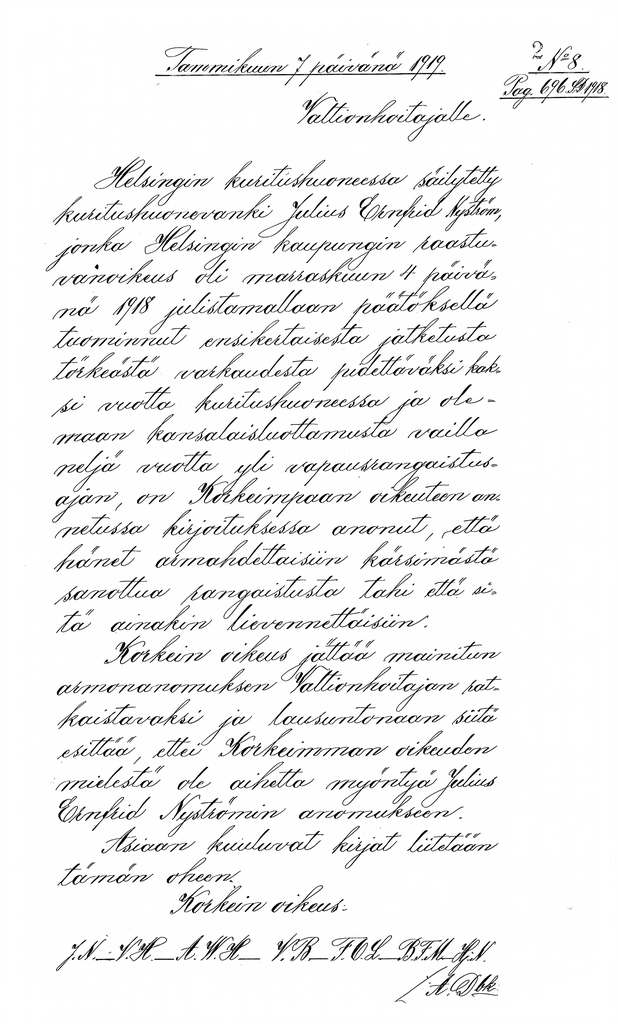 Tammikuun 7 päivänä 1919.
2 No 8.
Pag. 696 1918.
Valtionhoitajalle.
Helsingin kuritushuoneessa säilytetty
kuritushuonevanki Julius Ernfrid Nyström,
jonka Helsingin kaupungin raastu-
vanoikeus oli marraskuun 4 päivä-
nä 1918 julistamallaan päätöksellä
tuominnut ensikertaisesta jatketusta
törkeästä varkaudesta pidettäväksi kak-
si vuotta kuritushuoneessa ja ole-
maan kansalaisluottamusta vailla
neljä vuotta yli vapausrangaistus-
ajan, on Korkeimpaan oikeuteen an-
netussa kirjoituksessa anonut, että
hänet armahdettaisiin kärsimästä
sanottua rangaistusta tahi että si-
tä ainakin lievennettäisiin.
Korkein oikeus jättää mainitun
armonanomuksen Valtionhoitajan rat-
kaistavaksi ja lausuntonaan siitä
esittää, ettei Korkeimman oikeuden
mielestä ole aihetta myöntyä Julius
Ernfrid Nyströmin anomukseen.
Asiaan kuuluvat kirjat liitetään
tämän oheen.
Korkein oikeus:
J. N. — V. H. — A. W. H — V. B — F. O. L. — B. F. M. — Hj. N.
/ A. Dbk.